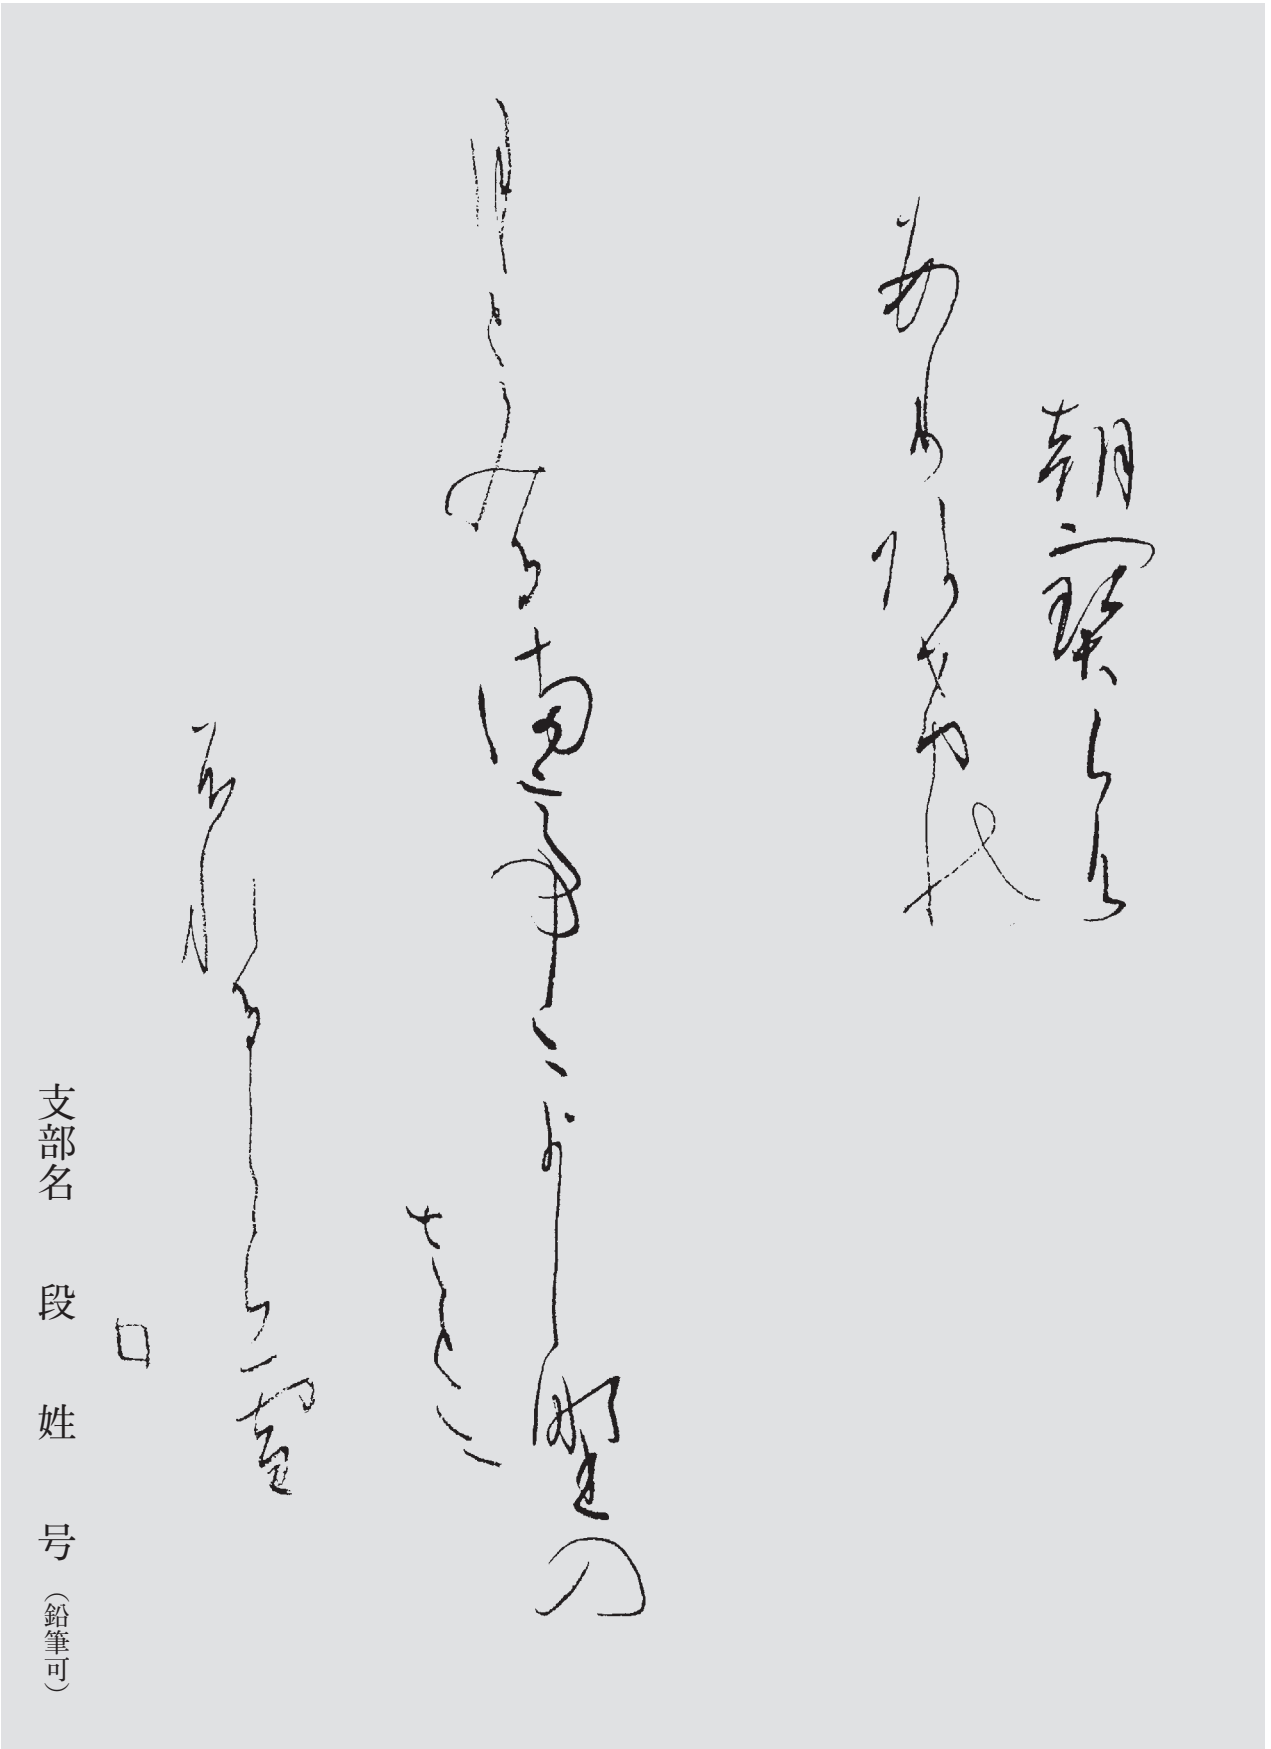 朝寶らけ
ありあけの
月とみる満でによし野の
さとに
ふれ
るしら雪
支部名 段 姓 号 （鉛筆可）